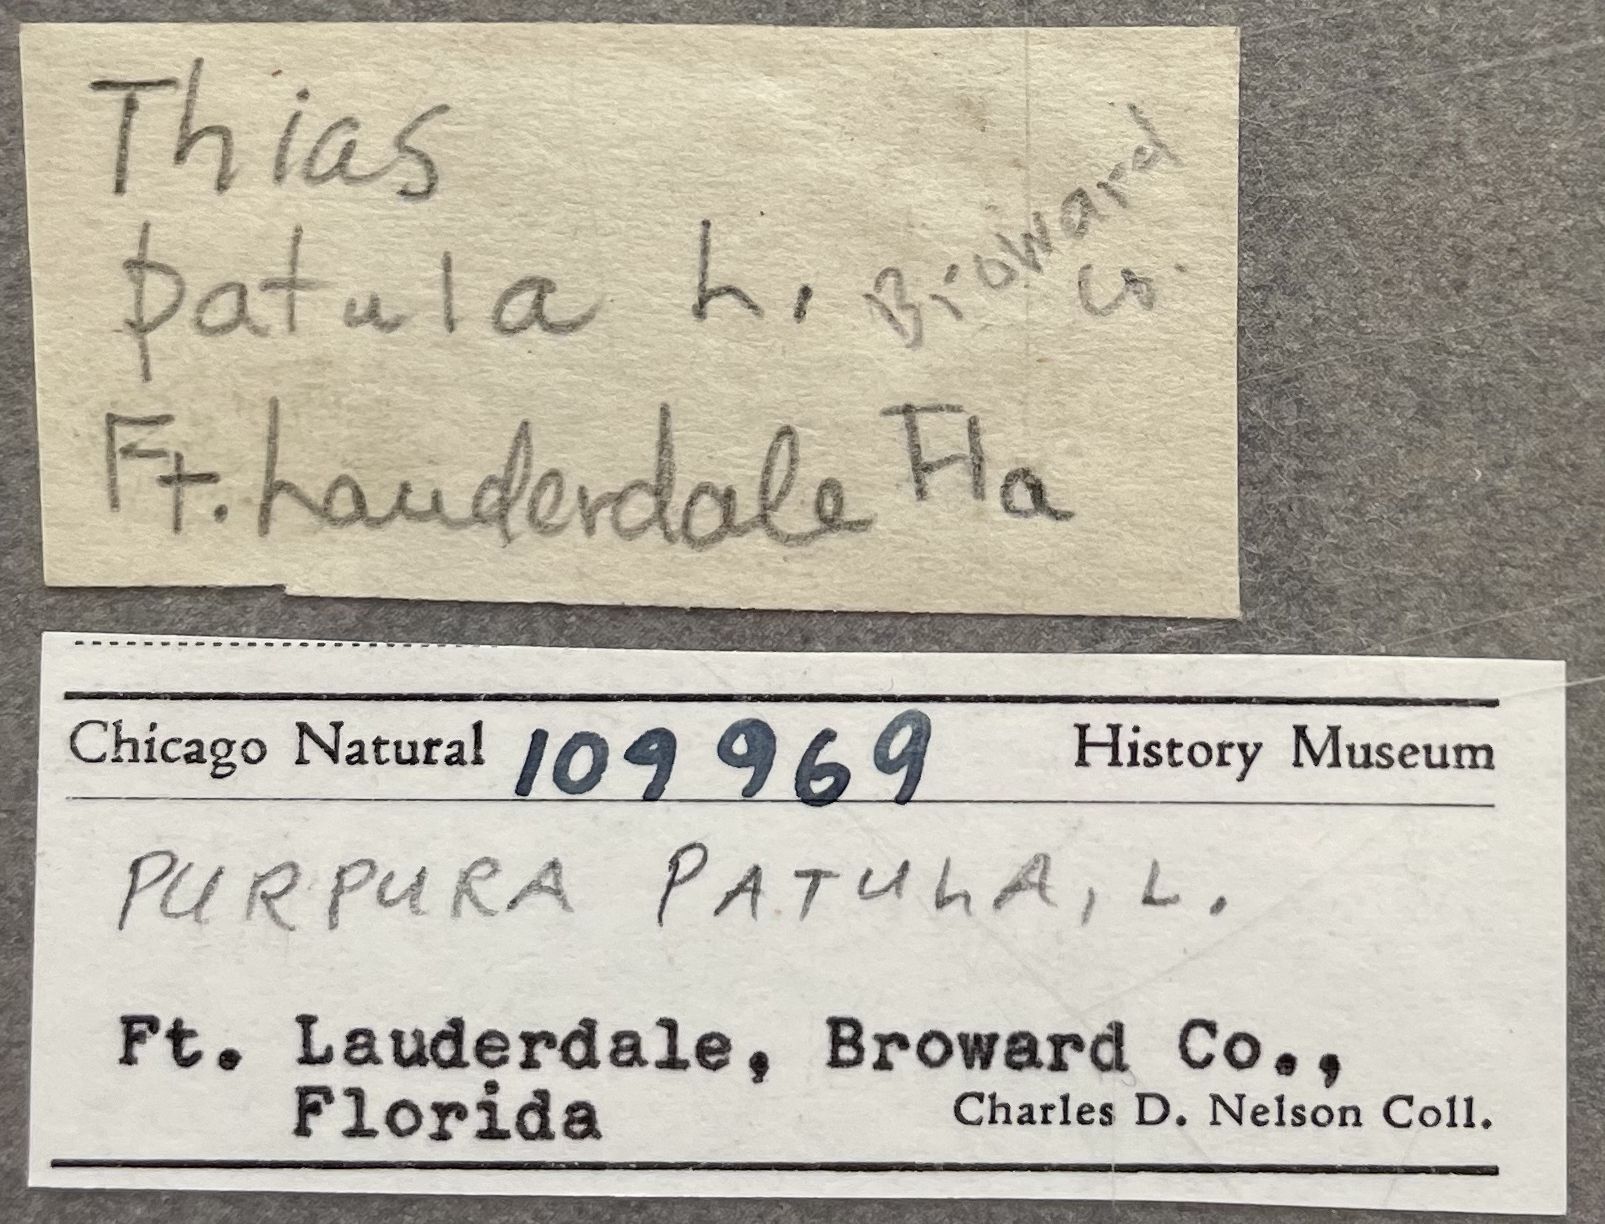 Thias
patula L. Broward
Co.
Ft. Lauderdale Fla
Chicago Natural 109969 History Museum
PURPURA PATULA, L.
Ft. Lauderdale, Broward Co.,
Florida
Charles D. Nelson Coll.